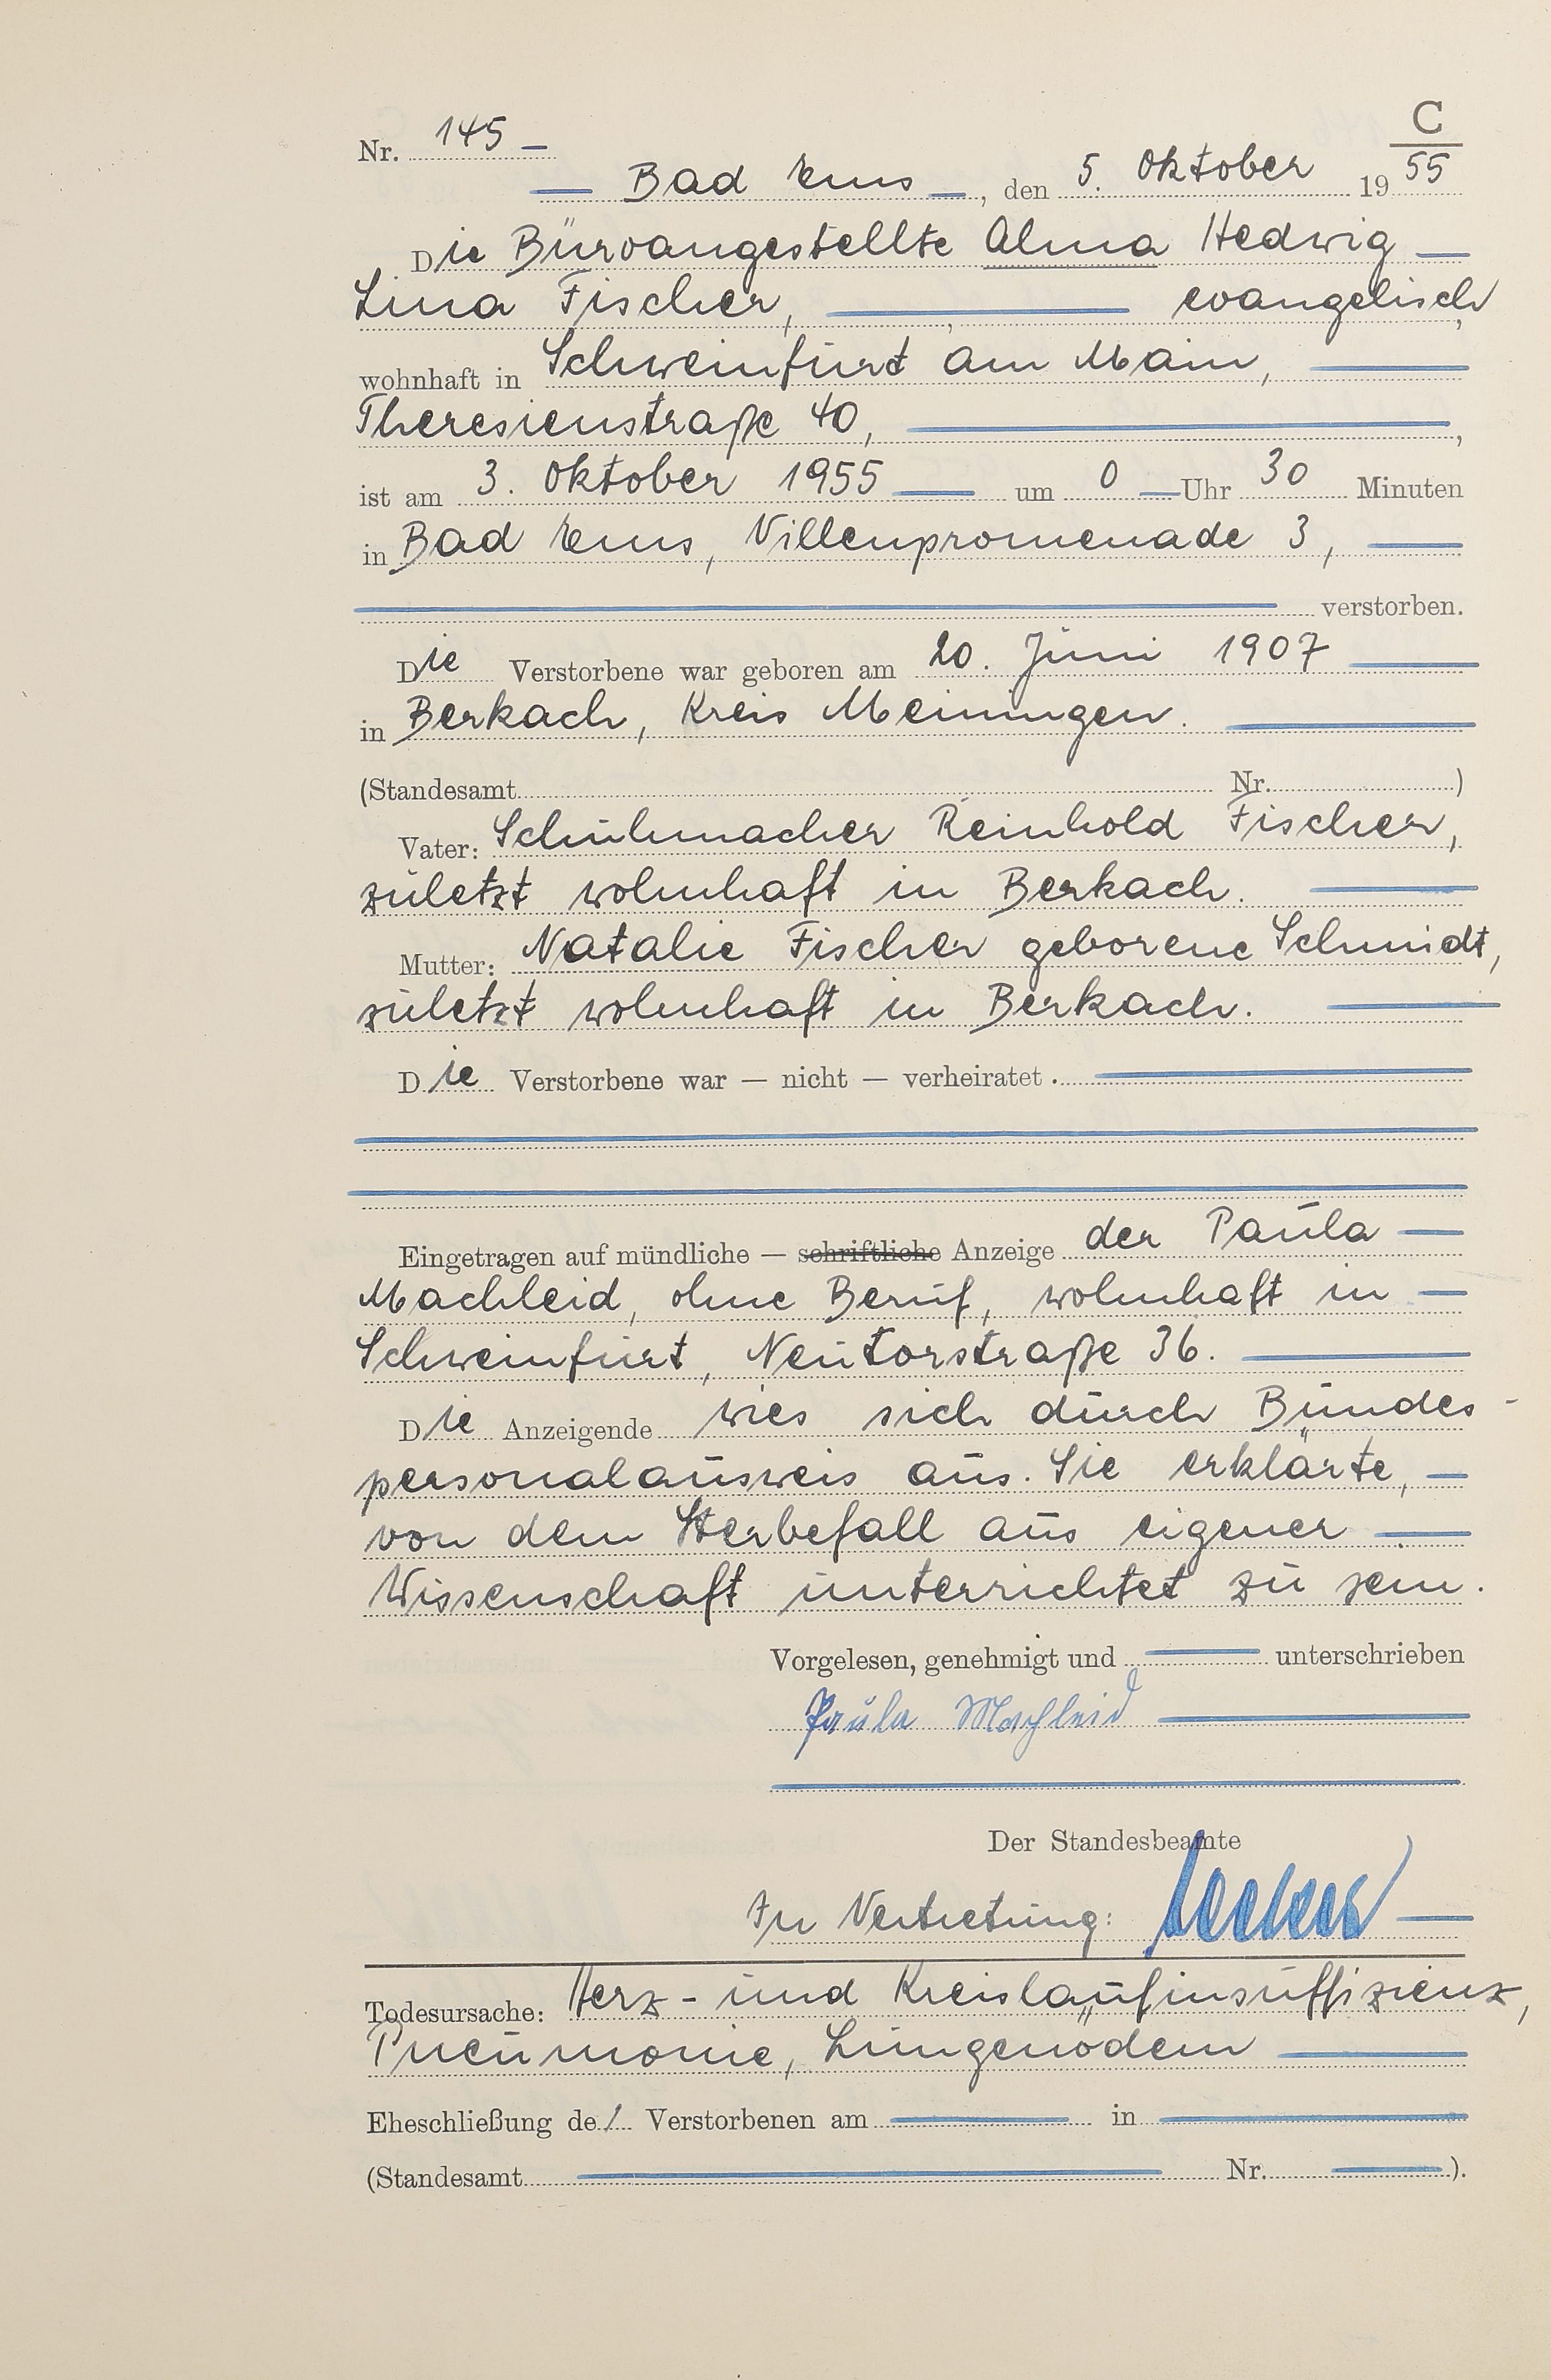 C
Nr. 145 —
— Bad Ems —, den 5. Oktober 19 55
Die Büroangestellte Alma Hedwig —
Lina Fischer, — evangelisch,
wohnhaft in Schweinfurt am Main, —
Theresienstraße 40, —,
ist am 3. Oktober 1955 — um 0 — Uhr 30 Minuten
in Bad Ems, Villenpromenade 3, —
— verstorben.
Die Verstorbene war geboren am 20. Juni 1907 —
in Berkach, Kreis Meiningen. —
(Standesamt Nr. )
Vater: Schuhmacher Reinhold Fischer,
zuletzt wohnhaft in Berkach. —
Mutter: Natalie Fischer geborene Schmidt,
zuletzt wohnhaft in Berkach. —
Die Verstorbene war — nicht — verheiratet. —
Eingetragen auf mündliche — schriftliche Anzeige der Paula —
Machleid, ohne Beruf, wohnhaft in —
Schweinfurt, Neutorstraße 36. —
Die Anzeigende wies sich durch Bundes-
personalausweis aus. Sie erklärte, —
von dem Sterbefall aus eigener —
Wissenschaft unterrichtet zu sein.
Vorgelesen, genehmigt und — unterschrieben
Paula Machleid —
Der Standesbeamte
In Vertretung: —
Todesursache: Herz- und Kreislaufinsuffizienz,
Pneumonie, Lungenödem —
Eheschließung de/ Verstorbenen am — in —
(Standesamt — Nr. —).